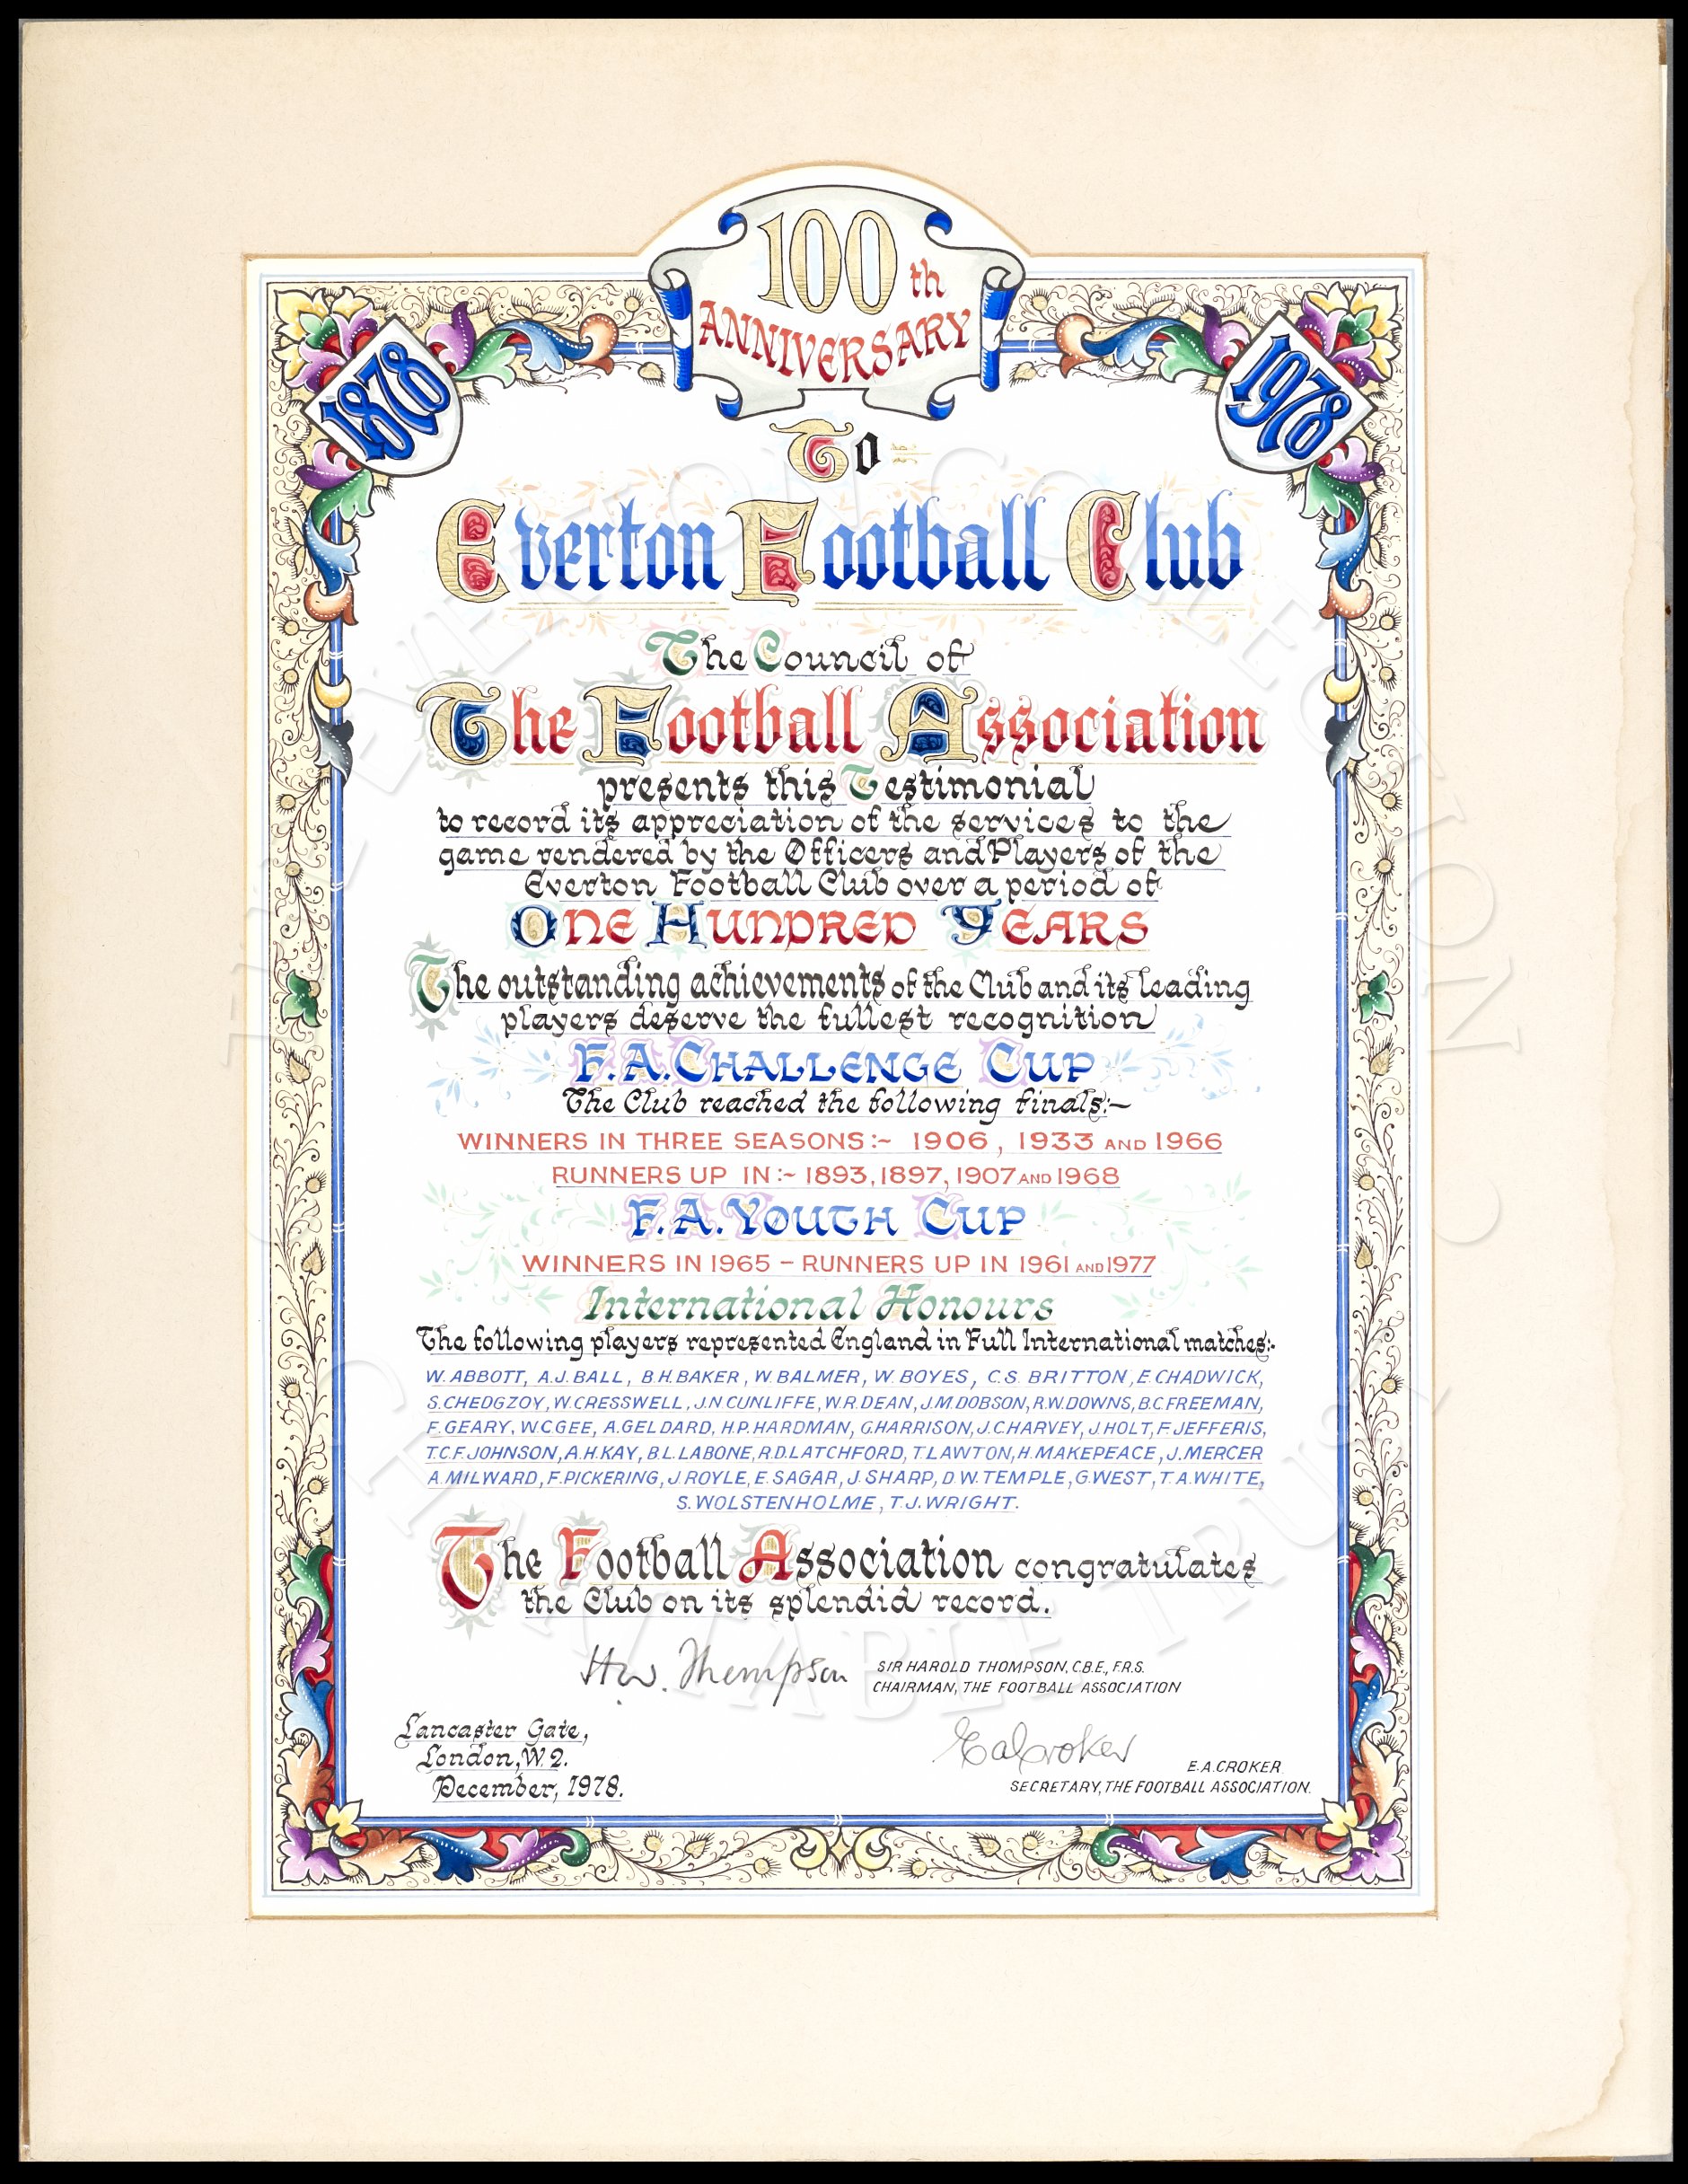 100th
ANNIVERSARY
1878
1978
To
Everton Football Club
The Council of
The Football Association
presents this Testimonial
to record its appreciation of the services to the
game rendered by the Officers and Players of the
Everton Football Club over a period of
ONE HUNDRED YEARS
The outstanding achievements of the Club and its leading
players deserve the fullest recognition
F.A. CHALLENGE CUP
The Club reached the following finals:~
WINNERS IN THREE SEASONS:~ 1906, 1933 AND 1966
RUNNERS UP IN:~ 1893, 1897, 1907 AND 1968
F.A. YOUTH CUP
WINNERS IN 1965 - RUNNERS UP IN 1961 AND 1977
International Honours
The following players represented England in Full International matches:-
W. ABBOTT, A.J. BALL, B.H. BAKER, W. BALMER, W. BOYES, C.S. BRITTON, E. CHADWICK,
S. CHEDGZOY, W. CRESSWELL, J.N CUNLIFFE, W.R. DEAN, J.M. DOBSON, R.W. DOWNS, B.C. FREEMAN,
F. GEARY, W.C. GEE, A. GELDARD, H.P. HARDMAN, G. HARRISON, J.C. HARVEY, J. HOLT, F. JEFFERIS,
T.C.F. JOHNSON, A.H. KAY, B.L. LABONE, R.D. LATCHFORD, T. LAWTON, H. MAKEPEACE, J. MERCER
A. MILWARD, F. PICKERING, J. ROYLE, E. SAGAR, J. SHARP, D.W. TEMPLE, G. WEST, T.A. WHITE,
S. WOLSTENHOLME, T.J. WRIGHT.
The Football Association congratulates
the Club on its splendid record.
H.W. Thompson
SIR HAROLD THOMPSON, C.B.E., F.R.S.
CHAIRMAN, THE FOOTBALL ASSOCIATION
Lancaster Gate,
London, W2.
December, 1978.
E A Croker
E.A. CROKER
SECRETARY, THE FOOTBALL ASSOCIATION.
THE EVERTON COLLECTION
CHARITABLE TRUST